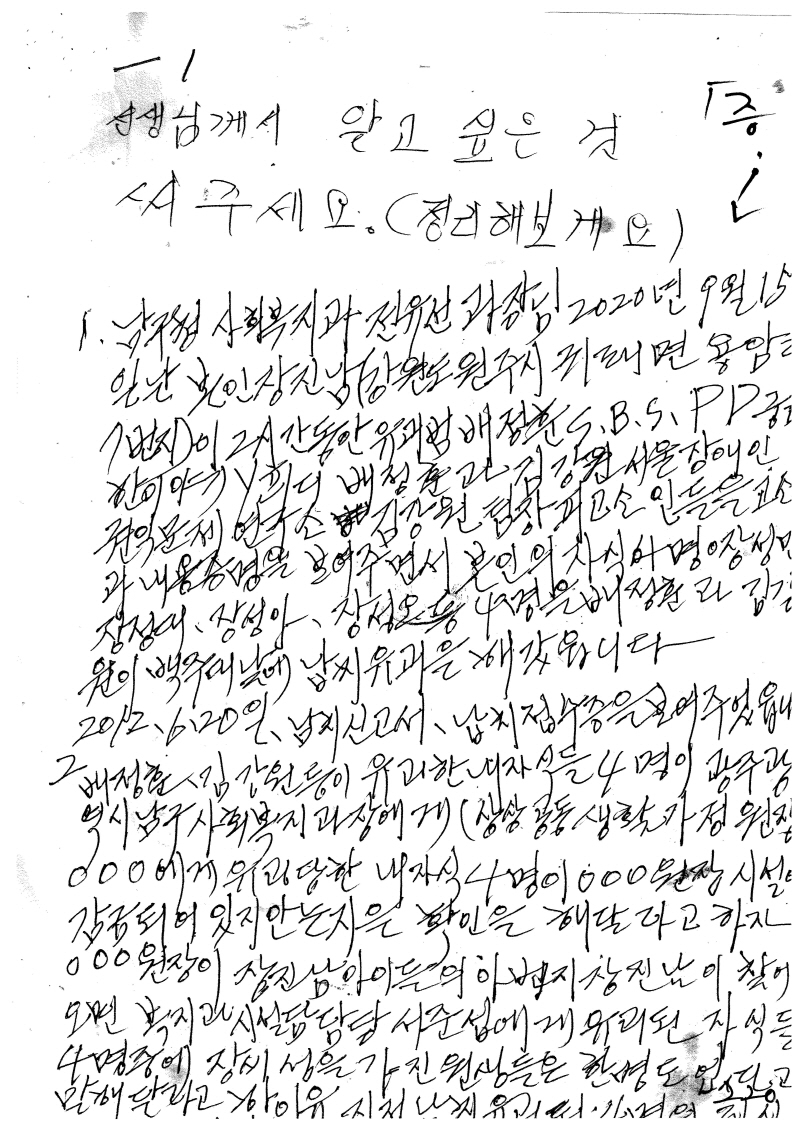 一 1
선생님께서 알고 싶은 건 「증.
써 주세요.(정리해보게요)
1. 남구청 사회복지과 전유선 과장님 2020년 9월 15
일난 본인장진남(강원도원주시 귀래면 용암
7번지)이 2시간동안유괴범 배정훈 S.B.S. PD
한이야기 피디 배정훈과 김강원 서울장애인
권익문제 연구소 김강원 팀장 피고소인들을 고소
과 내용증명을 보여주면서 본인의 자식 4명 장성민
장성대、장성아、장성온등 4명을배정훈과 김강
원이 백주대낮에 납치유괴을 해갔읍니다
2012.6.20일、납치신고서、납치접수증을보여주었읍니
2 배정훈、김강원등이 유괴한내자식들 4명이 광주광
역시남구사회복지과장에게(상상공동생활가정 원장
000에게유괴당한 내자식4명이 000원장시설
감금되어 있지안는지을 확인을 해달라고 하자
000원장이 장진남아이들의아버지 장진남이 찾어
오면 복지과시설담당 서준섭에게유괴된 자식들
4명중에 장씨 성을 가진원생들은 한명도 없다고
말해달라고 하여